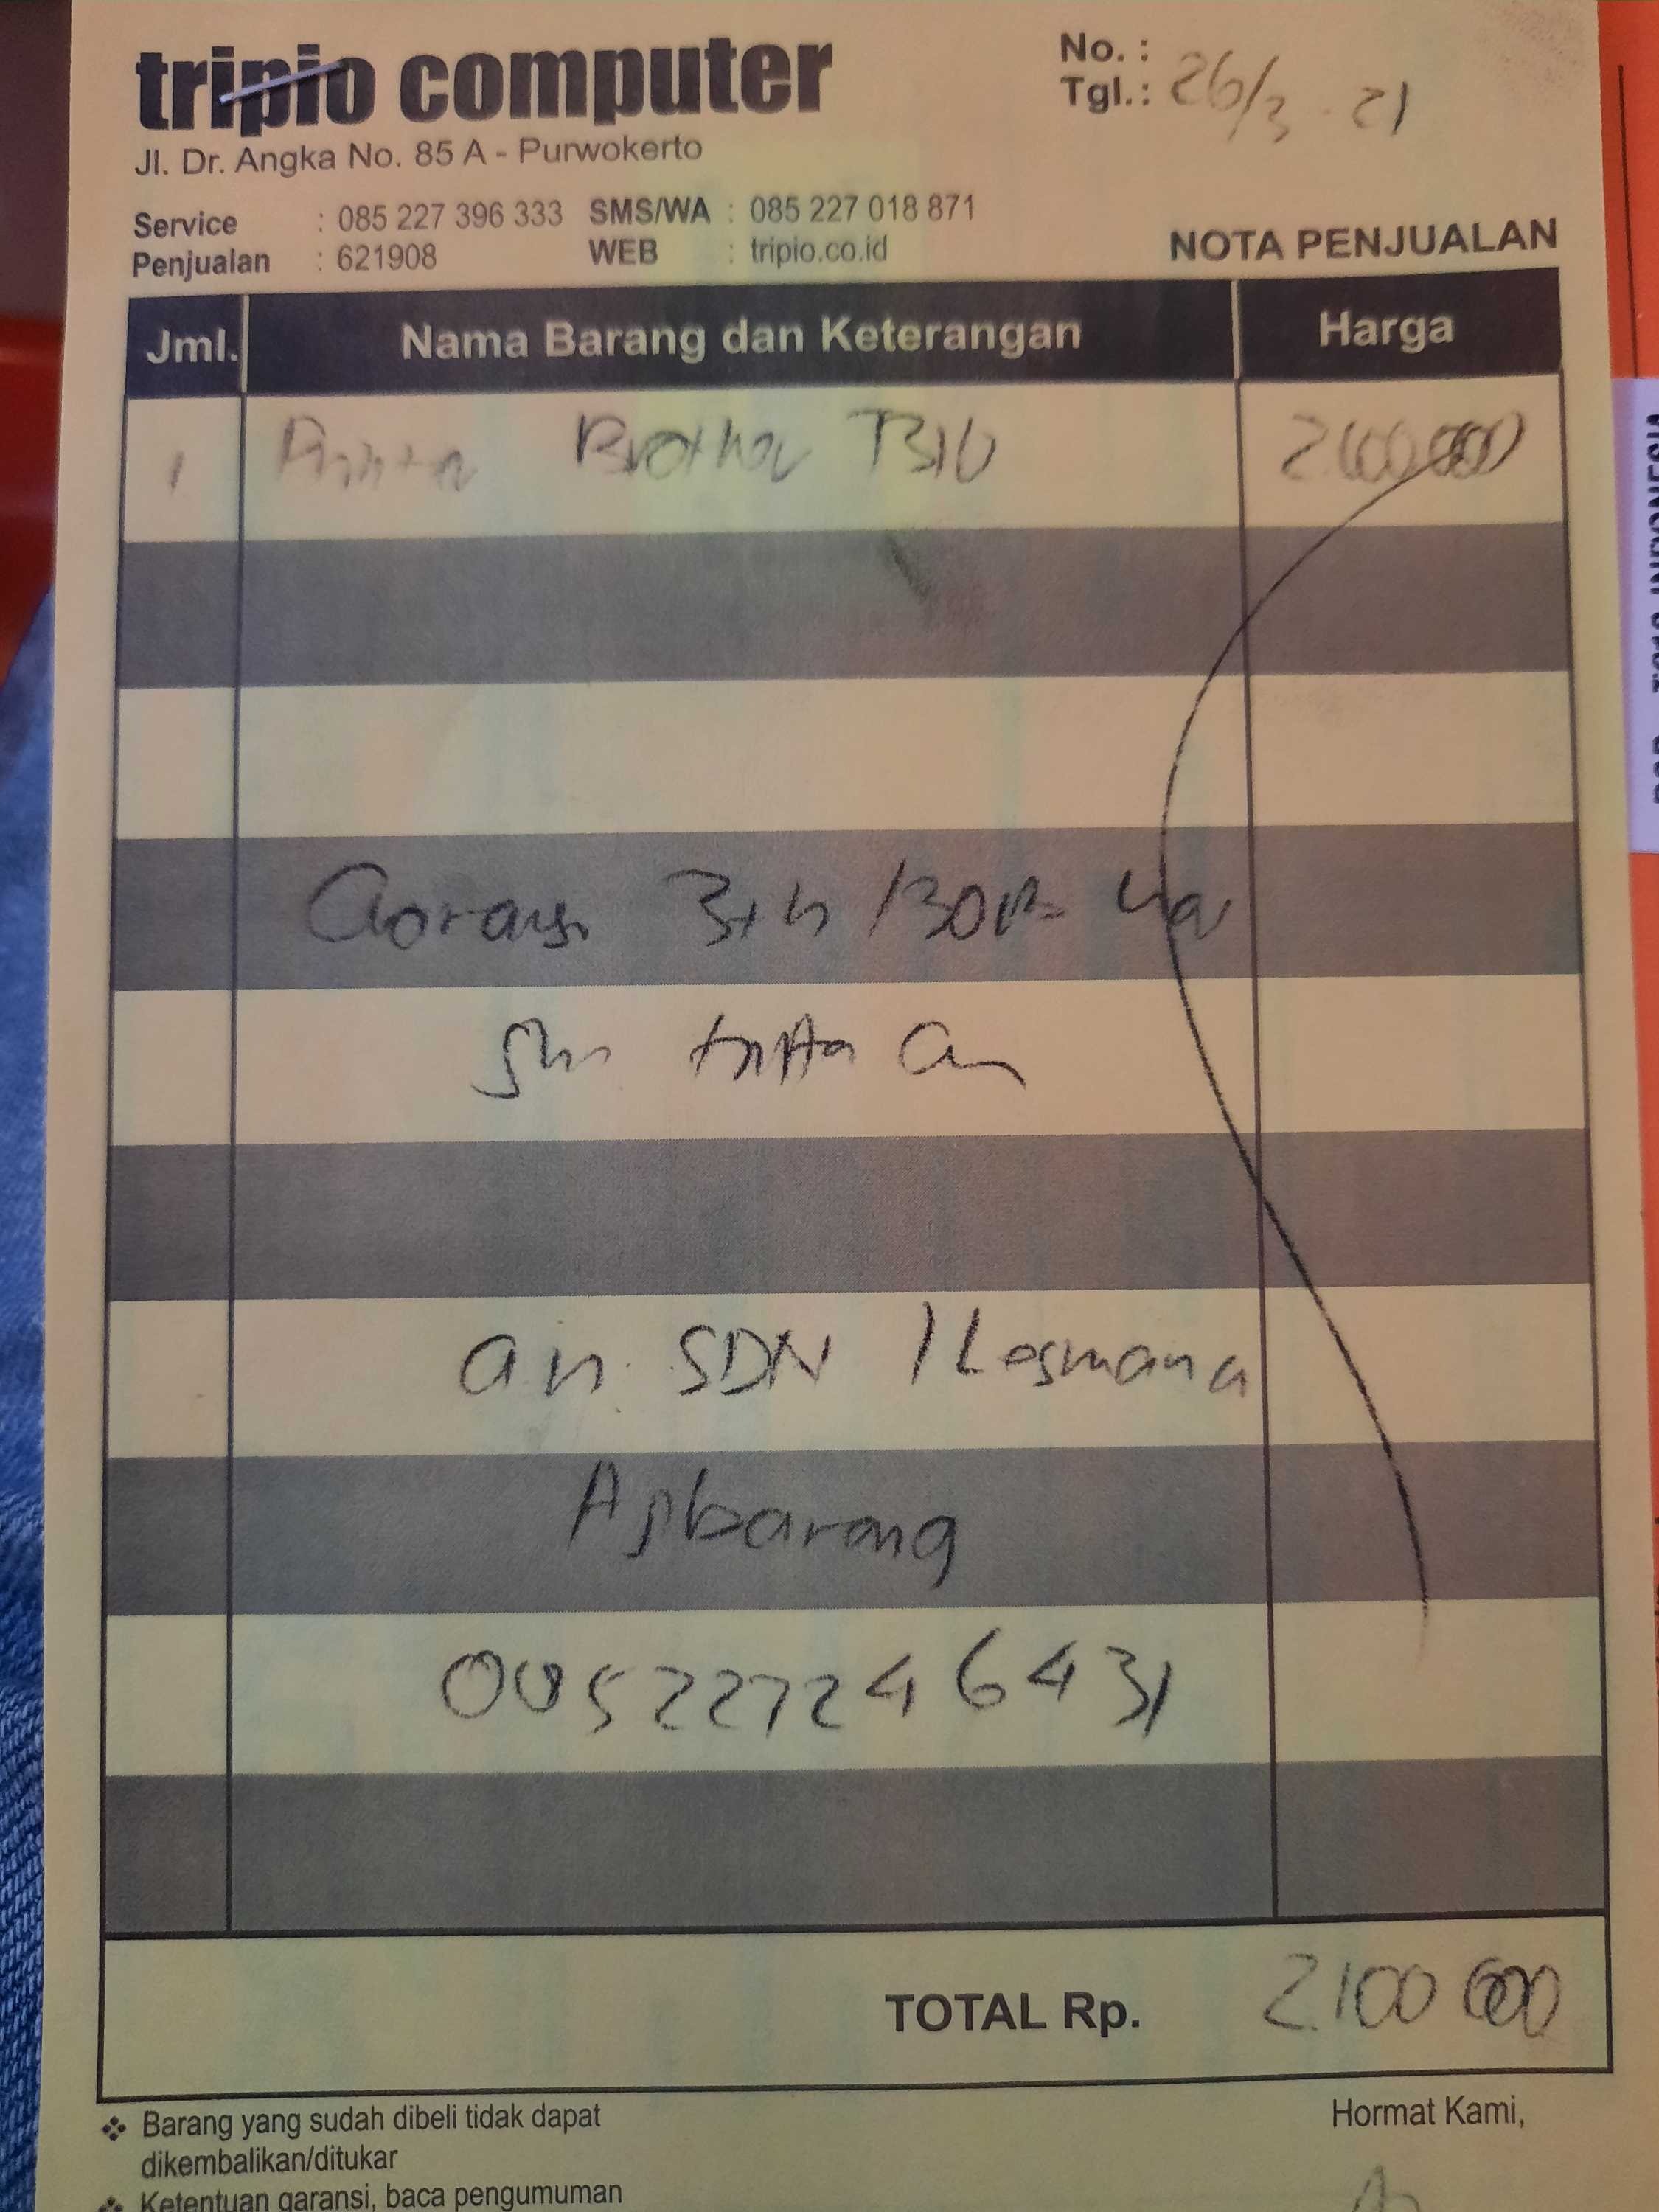 tripio computer
No. :
Tgl.: 26/3 - 21
Jl. Dr. Angka No. 85 A - Purwokerto
Service : 085 227 396 333 SMS/WA : 085 227 018 871
Penjualan : 621908 WEB : tripio.co.id
NOTA PENJUALAN
Jml. Nama Barang dan Keterangan Harga
1 Printer Brother T310 2.100.000
3th
an. SDN 1 Lesmana
Ajibarang
085227246431
TOTAL Rp. 2.100 000
Barang yang sudah dibeli tidak dapat
dikembalikan/ditukar
Ketentuan garansi, baca pengumuman
Hormat Kami,